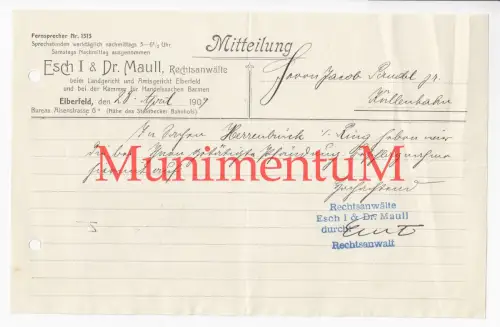 Fernsprecher Nr. 1515
Sprechstunden werktäglich nachmittags 3–6½ Uhr
Samstags Nachmittag ausgenommen
Mitteilung
Esch I & Dr. Maull, Rechtsanwälte
beim Landgericht und Amtsgericht Elberfeld
und bei der Kammer für Handelssachen Barmen
Elberfeld, den 23. April 1907
Bureau Alsenstrasse 6a (Nähe des Steinbecker Bahnhofs)
Herrn Jacob
Küllenhahn
In Sachen Herrenbrück ./. Ring haben wir
die bei Ihnen Pfändung
MunimentuM
Hochachtend
Rechtsanwälte
Esch I & Dr. Maull
durch:
Rechtsanwalt